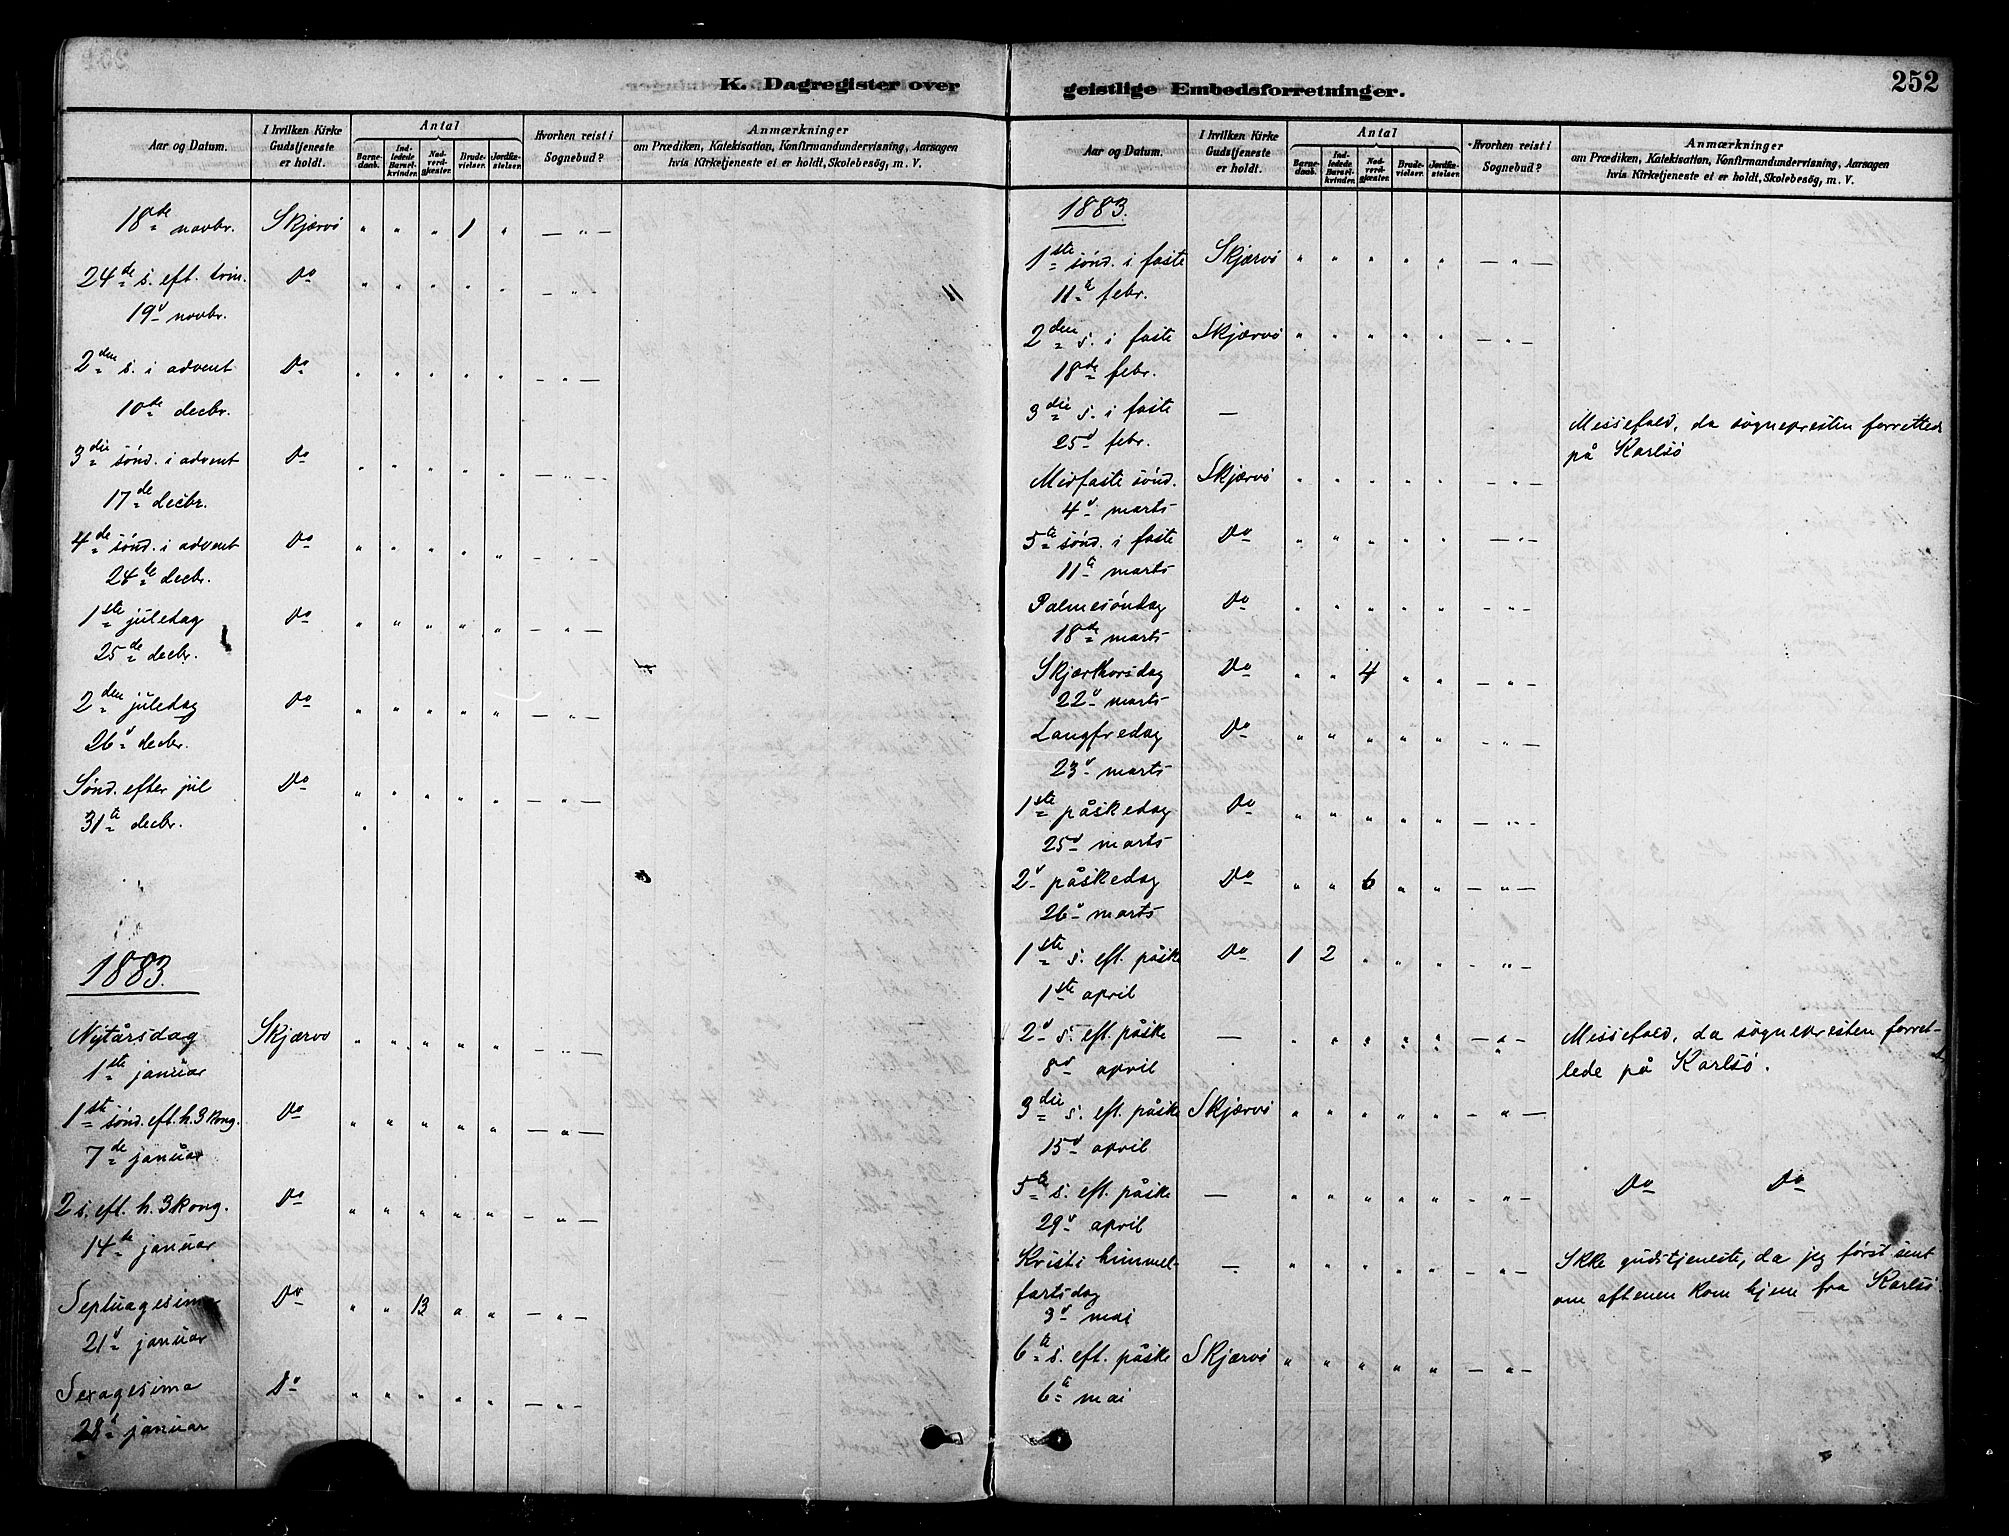 K. Dagregister over
Aar og Datum.
I hvilken Kirke Gudstjeneste er holdt.
Antal
Barne-daab.
Ind-ledede Barsel-kvinder.
Nad-verd-gjæster.
Brude-vielser.
Jordfæ-stelser.
Hvorhen reist i Sognebud?
Anmærkninger
om Prædiken, Katekisation, Konfirmandundervisning, Aarsagen
hvis Kirketjeneste ei er holdt, Skolebesög, m. V.
18de novbr. Skjærvö " " " 1 " — " —
24de s. eft. trin. Do " " " " " — " —
19d novbr.
2den s. i advent Do " " " " " — " —
10de decbr.
3die sönd. i advent Do " " " " " — " —
17de decbr.
4de sönd. i advent Do " " " " " — " —
24de decbr.
1ste juledag Do " " " " " — " —
25de decbr.
2den juledag Do " " " " " — " —
26d decbr.
Sönd. efter jul Do " " " " " — " —
31te decbr.
1883.
Nytårsdag Skjærvö " " " " " — " —
1ste januar
1ste sönd. eft. h. 3 kong. Do " " " " " — " —
7de januar
2 s. eft. h. 3 kong. Do " " " " " — " —
14de januar
Septuagesima Do " " 13 " " — " —
21d januar
Sexagesima Do " " " " " — " —
28d januar
geistlige Embedsforretninger.
252
Aar og Datum.
I hvilken Kirke Gudstjeneste er holdt.
Antal
Barne-daab.
Ind-ledede Barsel-kvinder.
Nad-verd-gjæster.
Brude-vielser.
Jordfæ-stelser.
Hvorhen reist i Sognebud?
Anmærkninger
om Prædiken, Katekisation, Konfirmandundervisning, Aarsagen
hvis Kirketjeneste ei er holdt, Skolebesög, m. V.
1883.
1ste sönd. i faste Skjærvö " " " " " — " —
11te febr.
2den s. i faste Skjærvö " " " " " — " —
18de febr.
3die s. i faste — Messefald, da sognepresten forrettede
25d febr. på Karlsö
Midfaste sönd. Skjærvö " " " " " — " —
4d marts
5te sönd. i faste Do " " " " " — " —
11te marts
Palmesöndag Do " " " " " — " —
18de marts
Skjærthorsdag Do " " 4 " " — " —
22d marts
Langfredag Do " " " " " — " —
23d marts
1ste påskedag Do " " " " " — " —
25d marts
2d påskedag Do " " 6 " " — " —
26d marts
1ste s. eft. påske Do 1 2 " " " — " —
1ste april
2d s. eft. påske — " " " " " — " — Messefald, da sognepresten forret-
8d april tede på Karlsö.
3die s. eft. påske Skjærvö " " " " " — " —
15d april
5te s. eft. påske — " " " " " — " — Do Do
29d april
Kristi himmel- — " " " " " — " — Ikke gudstjeneste, da jeg först sent
fartsdag om aftenen kom hjem fra Karlsö
3d mai
6te s. eft. påske Skjærvö " " " " " — " —
6te mai